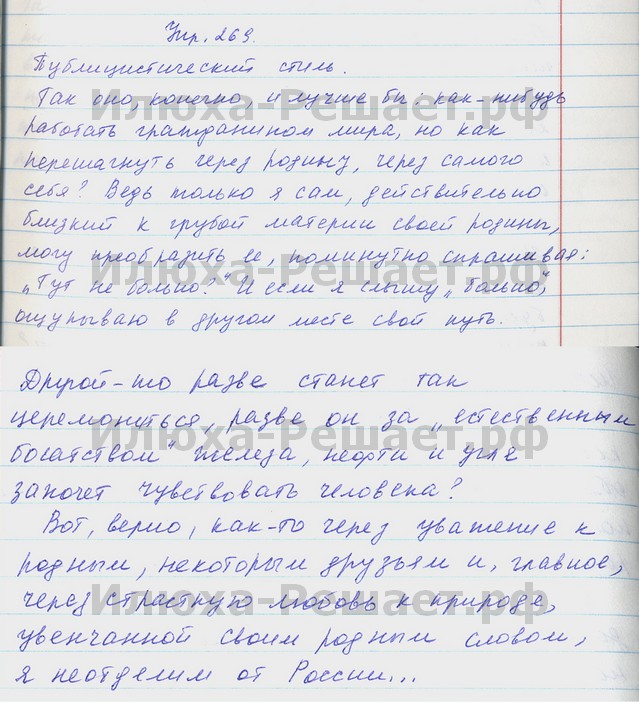 Упр. 269.
Публицистический стиль.
Так оно, конечно, и лучше бы: как-нибудь
работать гражданином мира, но как
перешагнуть через родину, через самого
себя? Ведь только я сам, действительно
близкий к грубой материи своей родины,
могу преобразить ее, поминутно спрашивая:
„Тут не больно?" И если я слышу „больно",
ощупываю в другом месте свой путь.
Другой-то разве станет так
церемониться, разве он за „естественным
богатством" железа, нефти и угля
захочет чувствовать человека?
Вот, верно, как-то через уважение к
родным, некоторым друзьям и, главное,
через страстную любовь к природе,
увенчанной своим родным словом,
я неотделим от России...
Илюха-Решает.рф
Илюха-Решает.рф
Илюха-Решает.рф
Илюха-Решает.рф